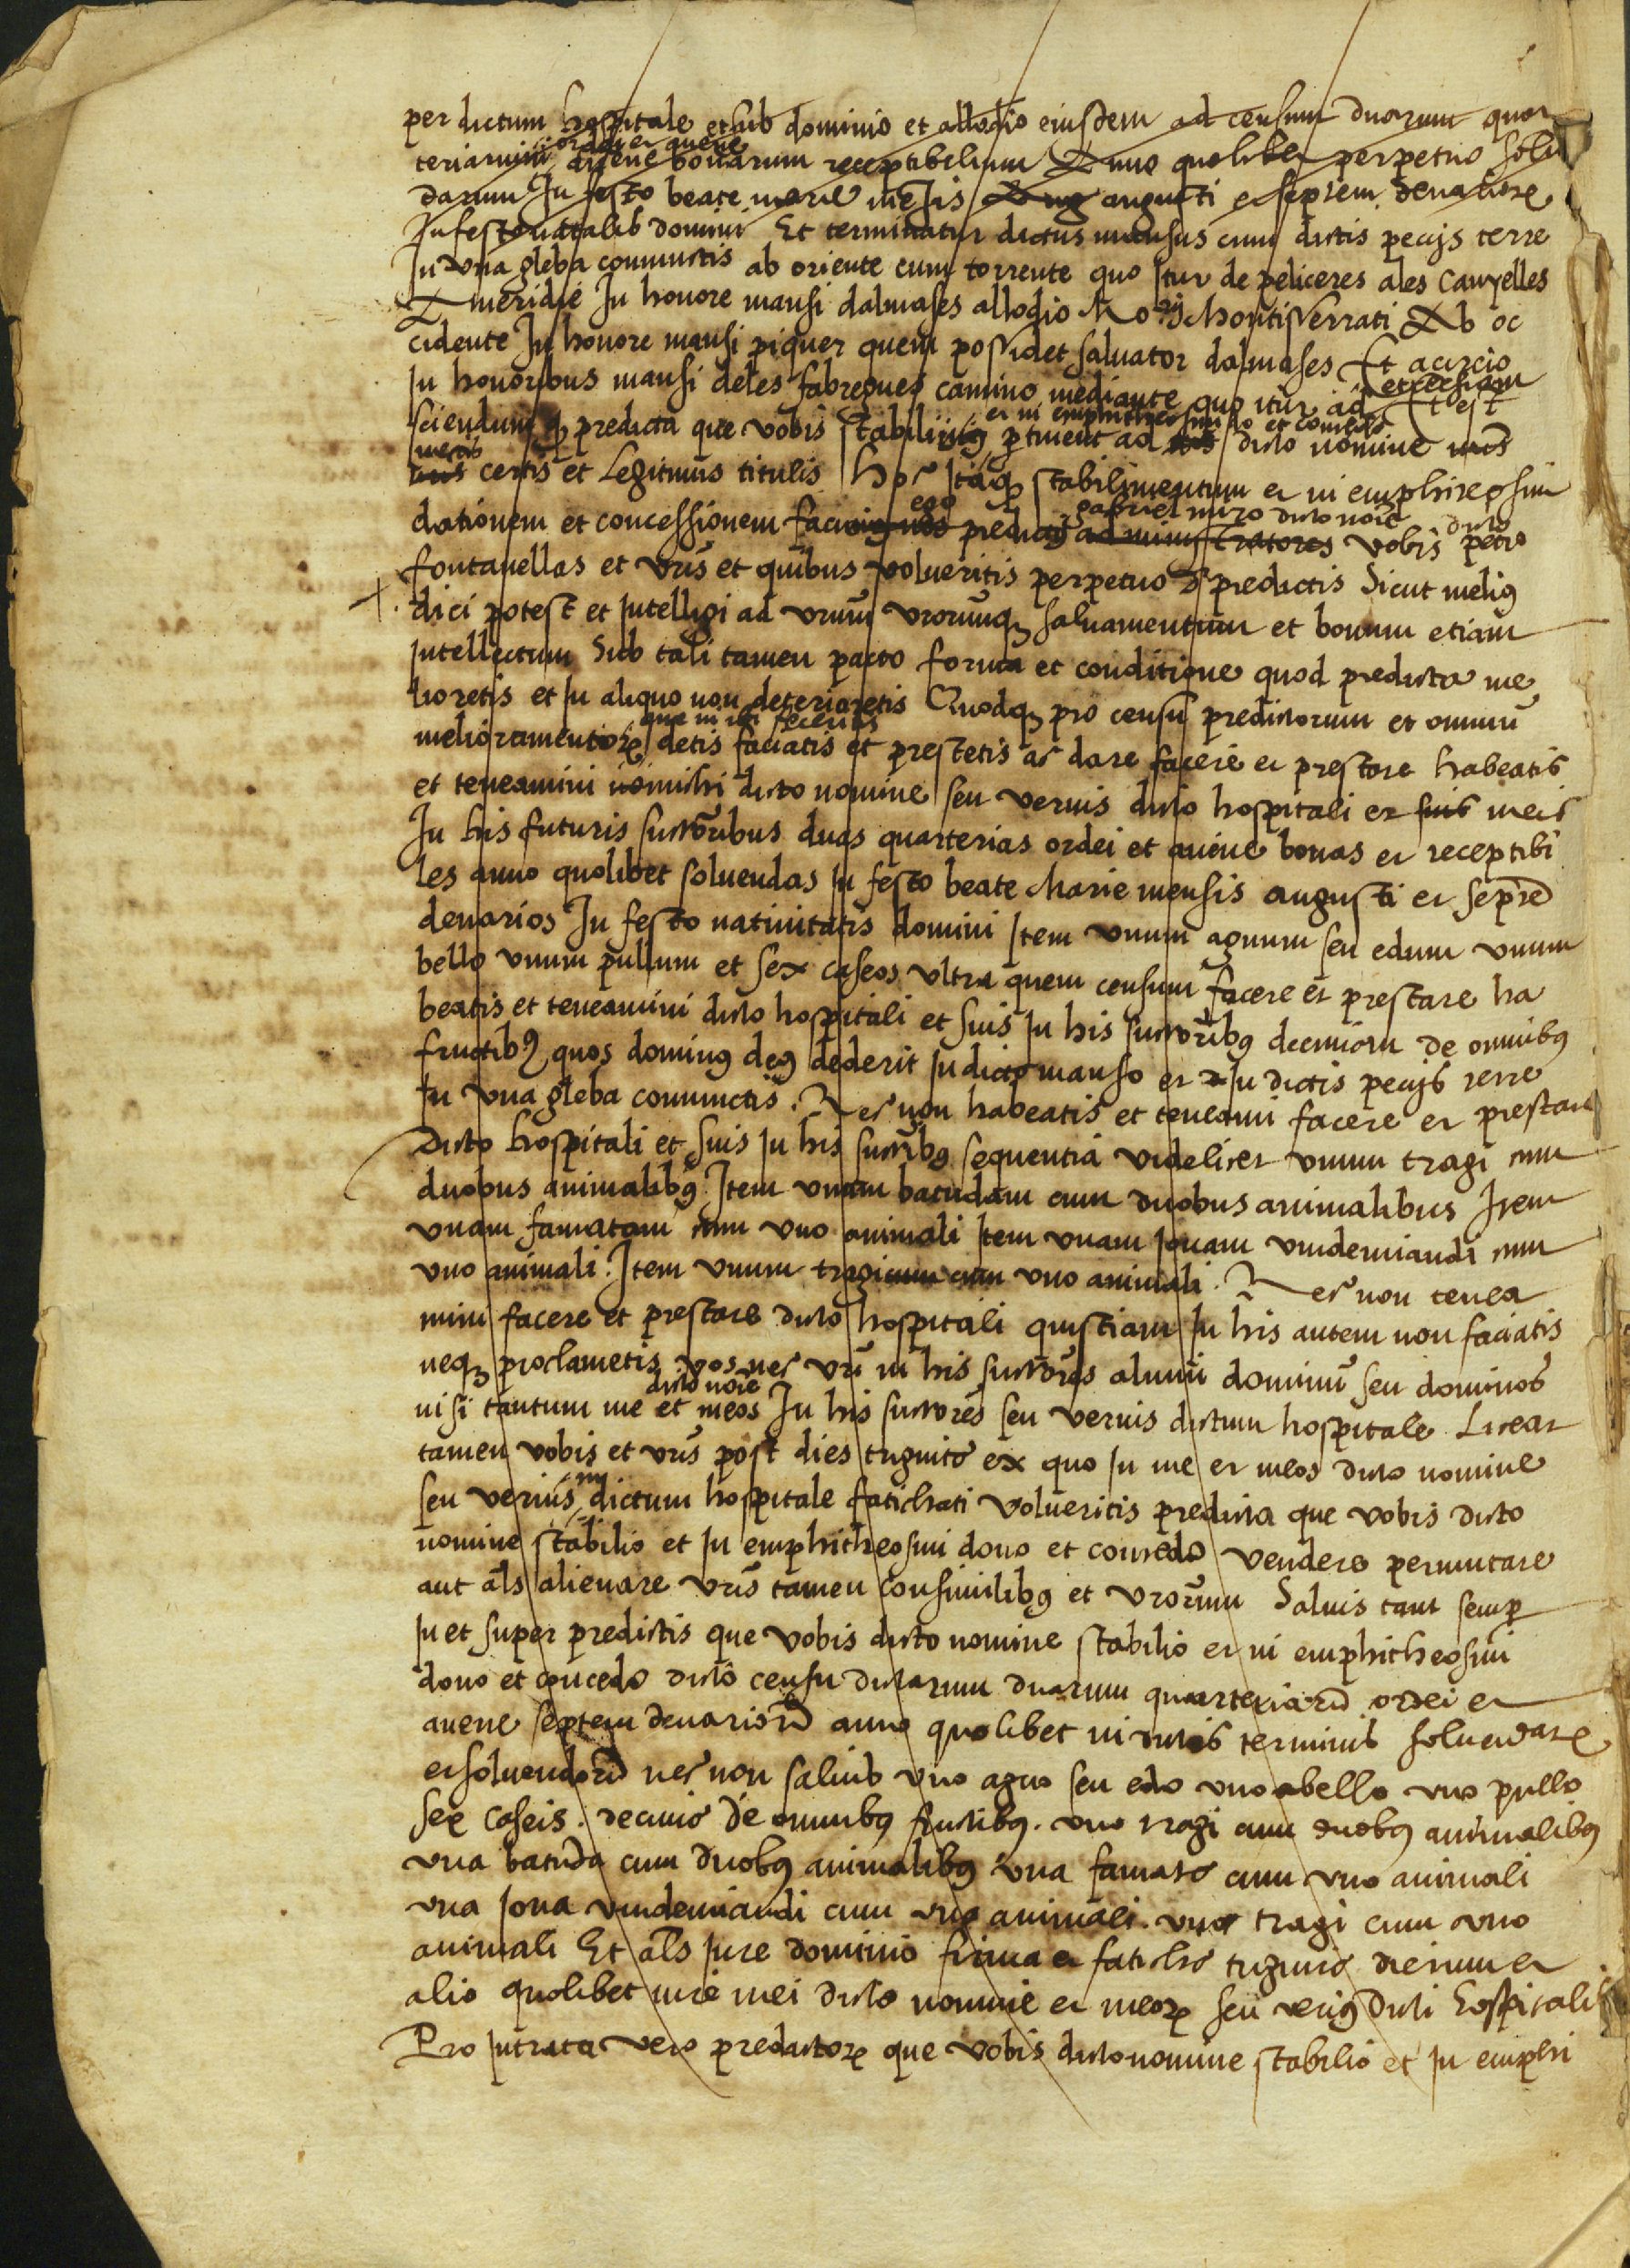 per dictum hospitale et sub dominio et allodio eiusdem ad censum duarum quar
ordei et avene
teriarum avene bonarum receptibelium Anno quolibet perpetuo solu
darum In festo beate marie mensis augusti et septem denariorꝝ
In festo natalis domini Et terminatur dictus mansus cum dictis pecijs terre
In vna gleba coniunctis ab oriente cum torrente quo itur de peliceres a les Canyelles
A meridie In honore mansi dalmases allodio Mōrij Montisserrati Ab oc
cidente In honore mansi piquer quem possidet saluator dalmases Et a circio
In honoribus mansi de les fabregues camino mediante quo itur ad ecclesiam
et in emphitheosim do et concedo
sciendum ꝙ predicta que vobis stabilimꝰ ptinent ad nos dicto nomine Et est
meis
nris certis et Legitimis titulis Hoc Itaqꝫ stabilimentum et in emphiteosim
ego gabriel miro dicto noīe
dationem et concessionem facimꝰ nos predicti administratores vobis dicto petro
fontanellas et vr̄is et quibus volueritis perpetuo de predictis Sicut meliꝰ
dici potest et Intelligi ad vrum vrorumqꝫ saluamentum et bonum etiam
Intellectum Sub tali tamen pacto forma et conditione quod predicta me
lioretis et In aliquo non deterioretis Quodqꝫ pro censu predictorum et omniū
que in ibi feceritis
melioramentorꝝ detis faciatis et prestetis ac dare facere et prestare habeatis
et teneamini mihi dicto nomine seu verius dicto hospitali et suis meis
In his futuris successoribus duas quarterias ordei et avene bonas et receptibi
les anno quolibet soluendas In festo beate Marie mensis augusti et septē
denarios In festo natiuitatis domini Item vnum agnum seu edum vnum
bello vnum pullum et sex caseos vltra quem censum facere et prestare ha
beatis et teneamini dicto hospitali et suis In his successoribꝰ decimam de omnibꝰ
fructibꝰ quos dominꝰ deꝰ dederit In dicto manso et In dictis pecijs terre
In vna gleba coniunctis. Nec non habeatis et teneami facere et prestare
Dicto hospitali et suis In his succribꝰ sequentia videlicet vnum tragi cum
duobus animalibꝰ Item vnam batudam cum duobus animalibus Item
vnam femata cum vno animali Item vnam Jouam vindemiandi cum
vno animali. Item vnum tragi cum vno animali. Nec non tenea
mini facere et prestare dicto hospitali questiam In his autem non faciatis
neqꝫ proclametis vos nec vr̄i in his succores aliumi dominū seu dominos
dicto noīe
nisi tantum me et meos In his succores seu verius dictum hospitale Liceat
tamen vobis et vr̄is post dies triginta ex quo In me et meos dicto nomine
in
seu verius dictum hospitale fatichati volueritis predicta que vobis dicto
nomine stabilio et In emphitheosim dono et concedo vendere permutare
aut als alienare vr̄is tamen consimilibꝰ et vrorum Saluis tant semp
In et super predictis que vobis dicto nomine stabilio et in emphitheosim
dono et concedo dicto censu dictarum duarum quarteriarū ordei et
avene septem denariorū anno quolibet in dictis terminis soluendarꝝ
et soluendorū nec non saluis vno agno seu edo vno abello vno pullo
sex caseis. decimo de omnibꝰ fructibꝰ. vno tragi cum duobꝰ animalibꝰ
vna batuda cum duobꝰ animalibꝰ vna femata cum vno animali
vna Joua vindemiandi cum vno animali. vno tragi cum vno
animali Et als Jure dominio firma et faticha triginta dierum et
alio quolibet iure mei dicto nomine et meorꝝ seu veriꝰ dicti hospitalis
Pro Intrata vero predictorꝝ que vobis dicto nomine stabilio et In emphi